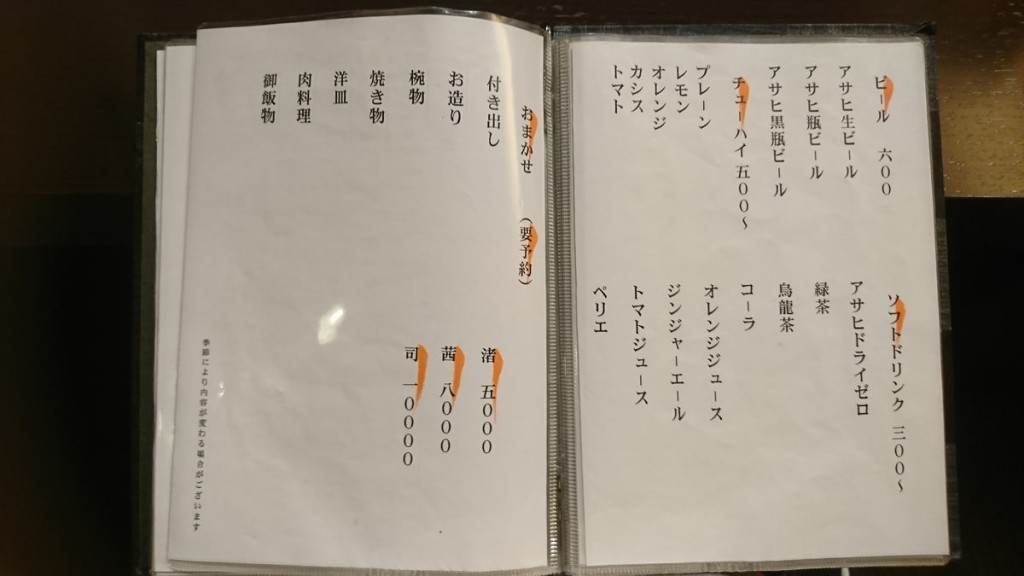 ビール 六００
アサヒ生ビール
アサヒ瓶ビール
アサヒ黒瓶ビール
チューハイ 五００～
プレーン
レモン
オレンジ
カシス
トマト
ソフトドリンク 三００～
アサヒドライゼロ
緑茶
烏龍茶
コーラ
オレンジジュース
ジンジャーエール
トマトジュース
ペリエ
おまかせ （要予約）
付き出し
お造り
椀物
焼き物
洋皿
肉料理
御飯物
渚 五０００
茜 八０００
司 一００００
季節により内容が変わる場合がございます